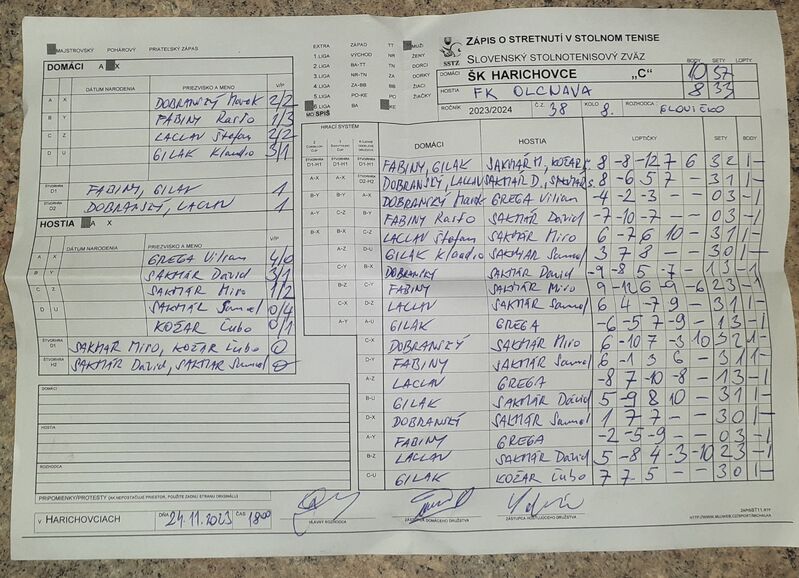 ZÁPIS O STRETNUTÍ V STOLNOM TENISE
SLOVENSKÝ STOLNOTENISOVÝ ZVÄZ
SSTZ
MAJSTROVSKÝ POHÁROVÝ PRIATEĽSKÝ ZÁPAS
EXTRA ZÁPAD TT MUŽI
1.LIGA VÝCHOD NR ŽENY
2.LIGA BA-TT TN DORCI
3.LIGA NR-TN ZA DORKY
4.LIGA ZA-BB BB ŽIACI
5.LIGA PO-KE PO ŽIAČKY
6.LIGA BA KE
MO SPIŠ
DOMÁCI ŠK HARICHOVCE „C“
HOSTIA FK OLCNAVA
BODY SETY LOPTY
10 37
8 33
ROČNÍK 2023/2024 Č.Z. 38 KOLO 8. ROZHODCA SLOVIČKO
DOMÁCI A X
DÁTUM NARODENIA PRIEZVISKO A MENO V/P
A X DOBRANSKÝ Marek 2/2
B Y FABINY Rasťo 1/3
C Z LACLAV Štefan 2/2
D U GILAK Klaudio 3/1
ŠTVORHRA D1 FABINY, GILAK 1
ŠTVORHRA D2 DOBRANSKÝ, LACLAV 1
HOSTIA A X
DÁTUM NARODENIA PRIEZVISKO A MENO V/P
A X GREGA Viliam 4/0
B Y SAKMÁR Dávid 3/1
C Z SAKMÁR Miro 1/2
D U SAKMÁR Samuel 0/4
KOŽAR Ľubo 0/1
ŠTVORHRA D1 SAKMÁR Miro, KOŽAR Ľubo 0
ŠTVORHRA H2 SAKMÁR Dávid, SAKMÁR Samuel 0
HRACÍ SYSTÉM
DOMÁCI HOSTIA LOPTIČKY SETY BODY
D1-H1 D1-H1 D1-H1 FABINY, GILAK SAKMÁR M., KOŽAR Ľ. 8 -8 -12 7 6 3 2 1 -
A-X A-X D2-H2 DOBRANSKÝ, LACLAV SAKMÁR D., SAKMÁR S. 8 -6 5 7 - 3 1 1 -
B-Y B-Y A-X DOBRANSKÝ Marek GREGA Viliam -4 -2 -3 - - 0 3 - 1
A-Y C-Z B-Y FABINY Rasťo SAKMÁR Dávid -7 -10 -7 - - 0 3 - 1
B-X B-X C-Z LACLAV Štefan SAKMÁR Miro 6 -7 6 10 - 3 1 1 -
A-Z D-U GILAK Klaudio SAKMÁR Samuel 3 7 8 - - 3 0 1 -
C-Y B-X DOBRANSKÝ SAKMÁR Dávid -9 -8 5 -7 - 1 3 - 1
B-Z C-Y FABINY SAKMÁR Miro 9 -12 6 -9 -6 2 3 - 1
C-X D-Z LACLAV SAKMÁR Samuel 6 4 -7 9 - 3 1 1 -
A-Y A-U GILAK GREGA -6 -5 7 -9 - 1 3 - 1
C-X DOBRANSKÝ SAKMÁR Miro 6 -10 7 -3 10 3 2 1 -
D-Y FABINY SAKMÁR Samuel 6 -1 3 6 - 3 1 1 -
A-Z LACLAV GREGA -8 7 -10 -8 - 1 3 - 1
B-U GILAK SAKMÁR Dávid 5 -9 8 10 - 3 1 1 -
D-X DOBRANSKÝ SAKMÁR Samuel 1 7 7 - - 3 0 1 -
A-Y FABINY GREGA -2 -5 -9 - - 0 3 - 1
B-Z LACLAV SAKMÁR Dávid 5 -8 4 -3 -10 2 3 - 1
C-U GILAK KOŽAR Ľubo 7 7 5 - - 3 0 1 -
DOMÁCI
HOSTIA
ROZHODCA
PRIPOMIENKY/PROTESTY (AK NEPOSTAČUJE PRIESTOR, POUŽITE ZADNÚ STRANU ORIGINÁLU)
V HARICHOVCIACH DŇA 24.11.2023 ČAS 18:00
HLAVNÝ ROZHODCA ZÁSTUPCA DOMÁCEHO DRUŽSTVA ZÁSTUPCA HOSŤUJÚCEHO DRUŽSTVA